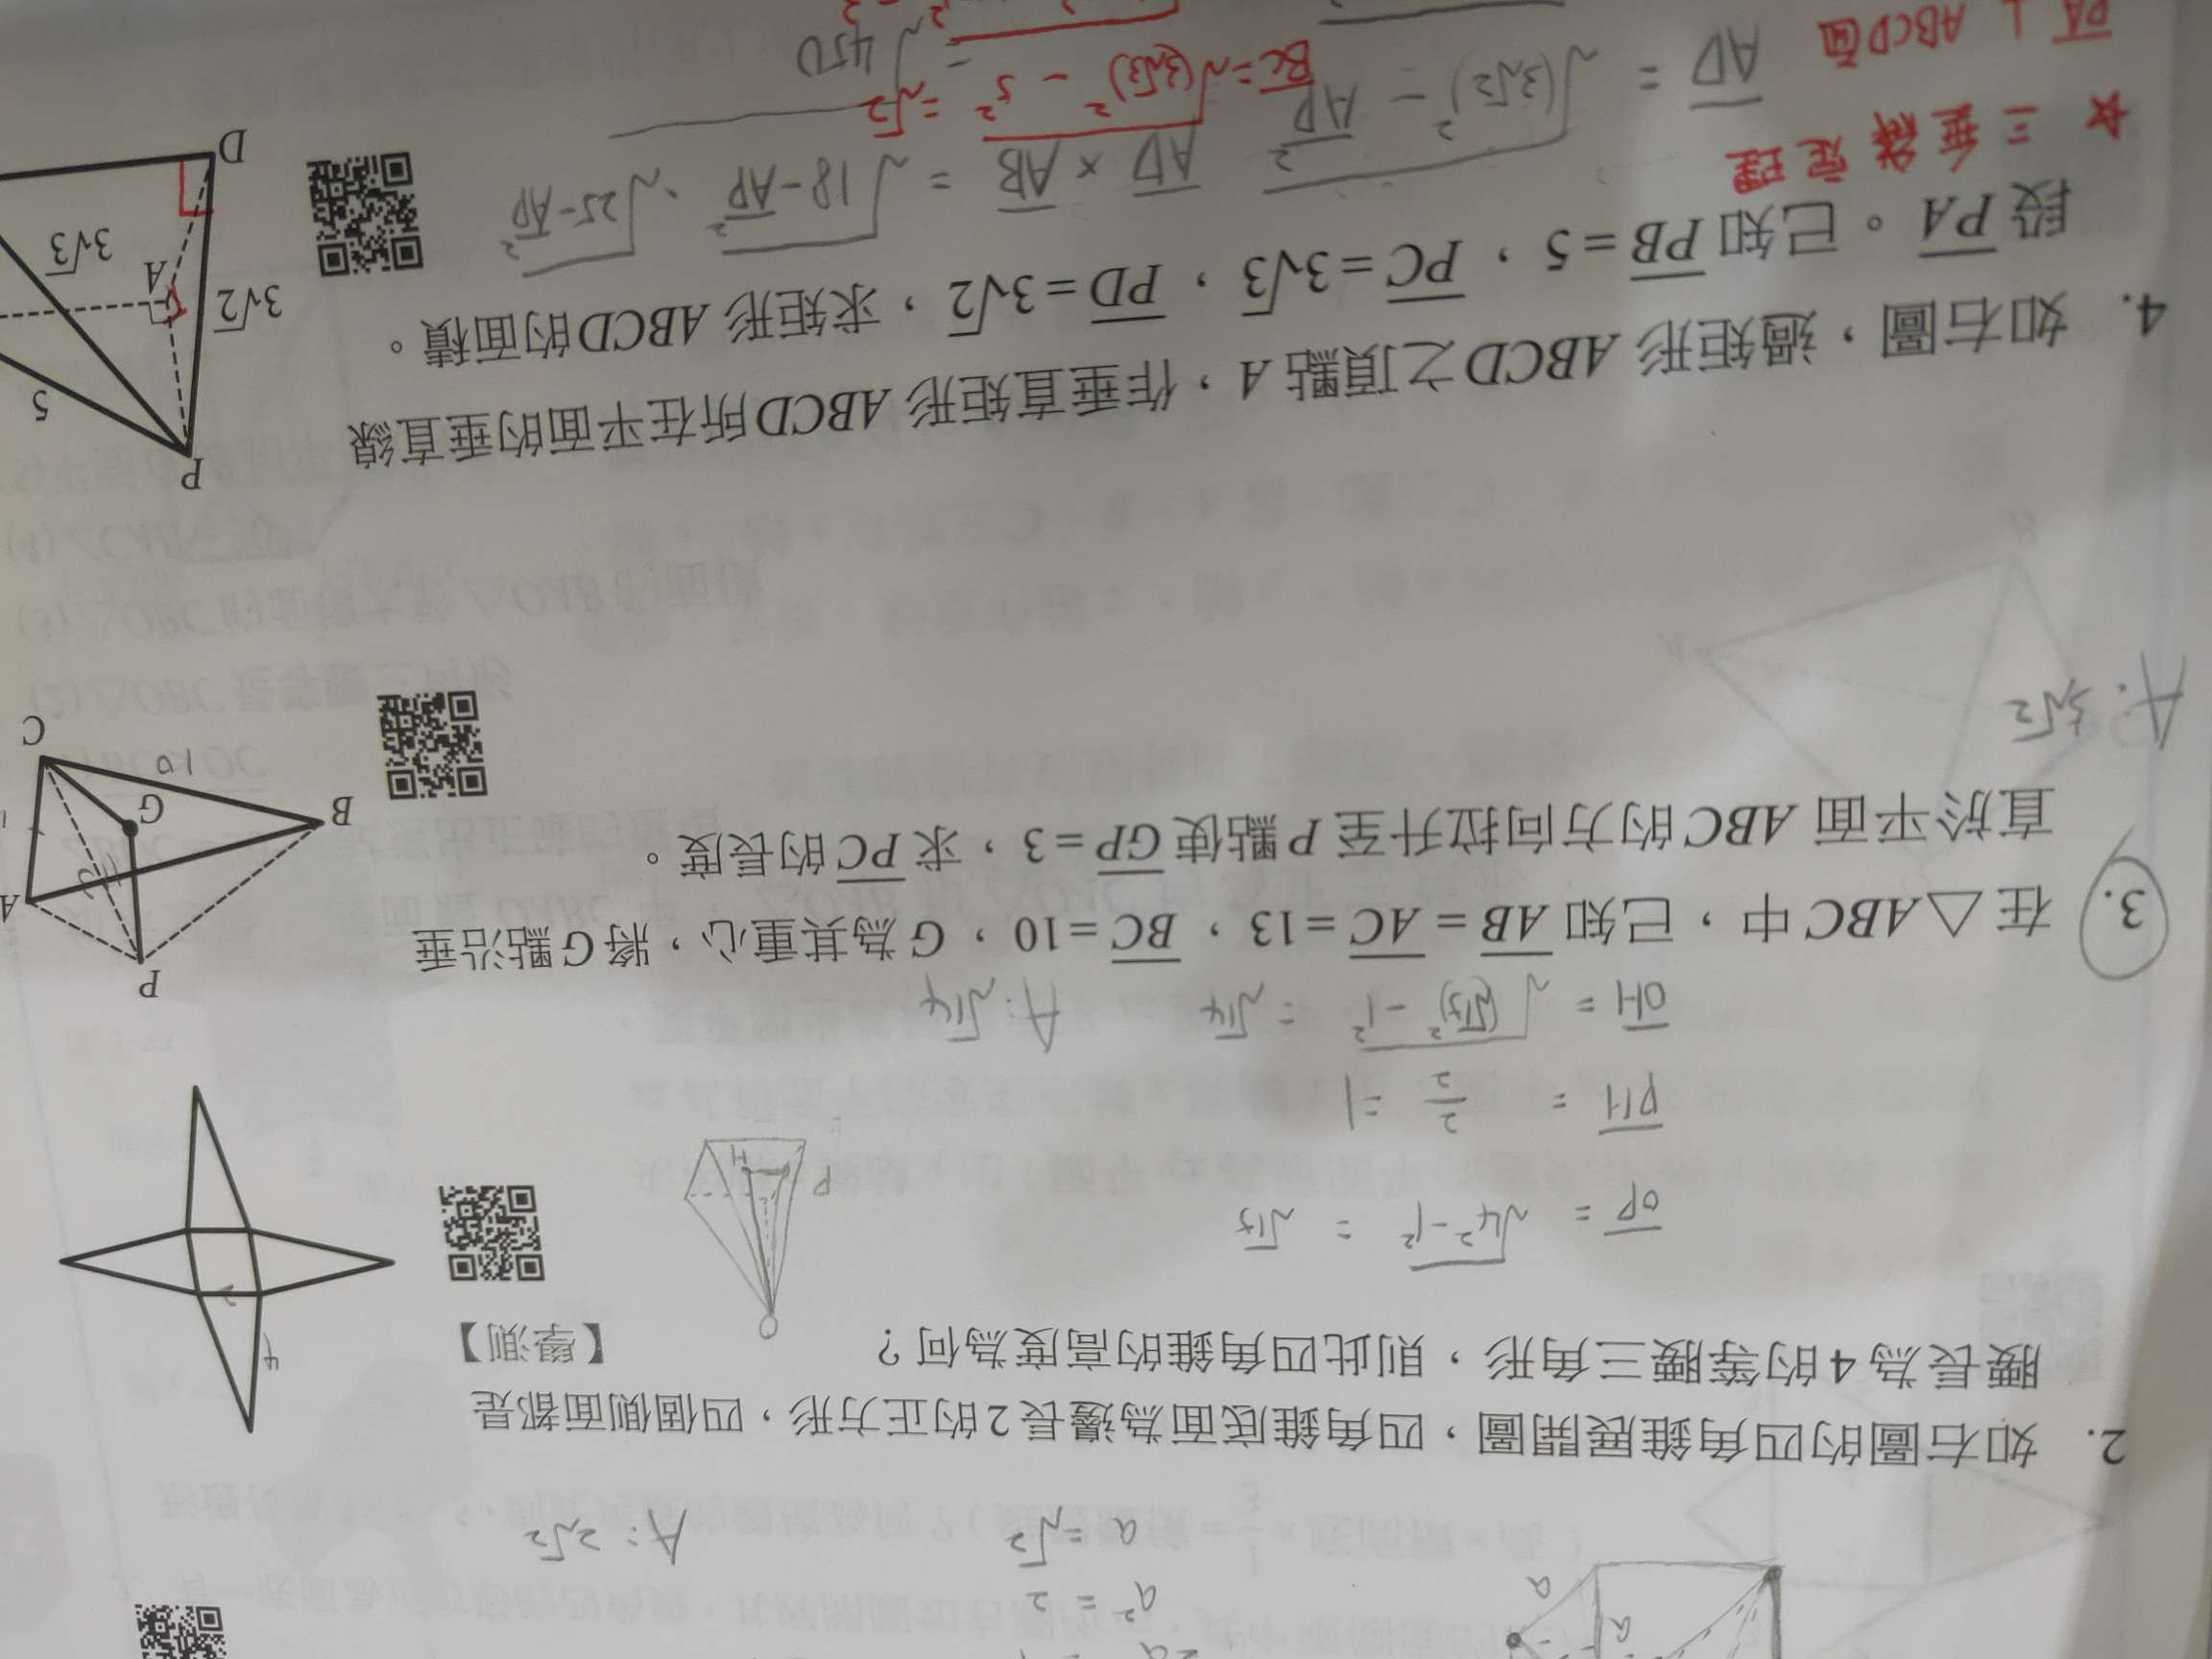 2a
a² = 2
a = √2
A: 2√2
a
a
2. 如右圖的四角錐展開圖，四角錐底面為邊長2的正方形，四個側面都是
腰長為4的等腰三角形，則此四角錐的高度為何？【學測】
4
2
O
P
H
OP = √4²-1² = √15
PH = 2/2 = 1
OH = √(√15)²-1² = √14 A: √14
3. 在△ABC中，已知AB=AC=13，BC=10，G為其重心，將G點沿垂
直於平面ABC的方向拉升至P點使GP=3，求PC的長度。
P
A
B
C
G
3
10
A: 5√2
4. 如右圖，過矩形ABCD之頂點A，作垂直矩形ABCD所在平面的垂直線
段PA。已知PB=5，PC=3√3，PD=3√2，求矩形ABCD的面積。
P
5
3√2
A
3√3
D
☆三垂線定理
AD × AB = √18-AP² · √25-AP²
PA ⊥ ABCD面
AD = √(3√2)² - AP²
BC = √(3√3)² - 5² = √2
= √450